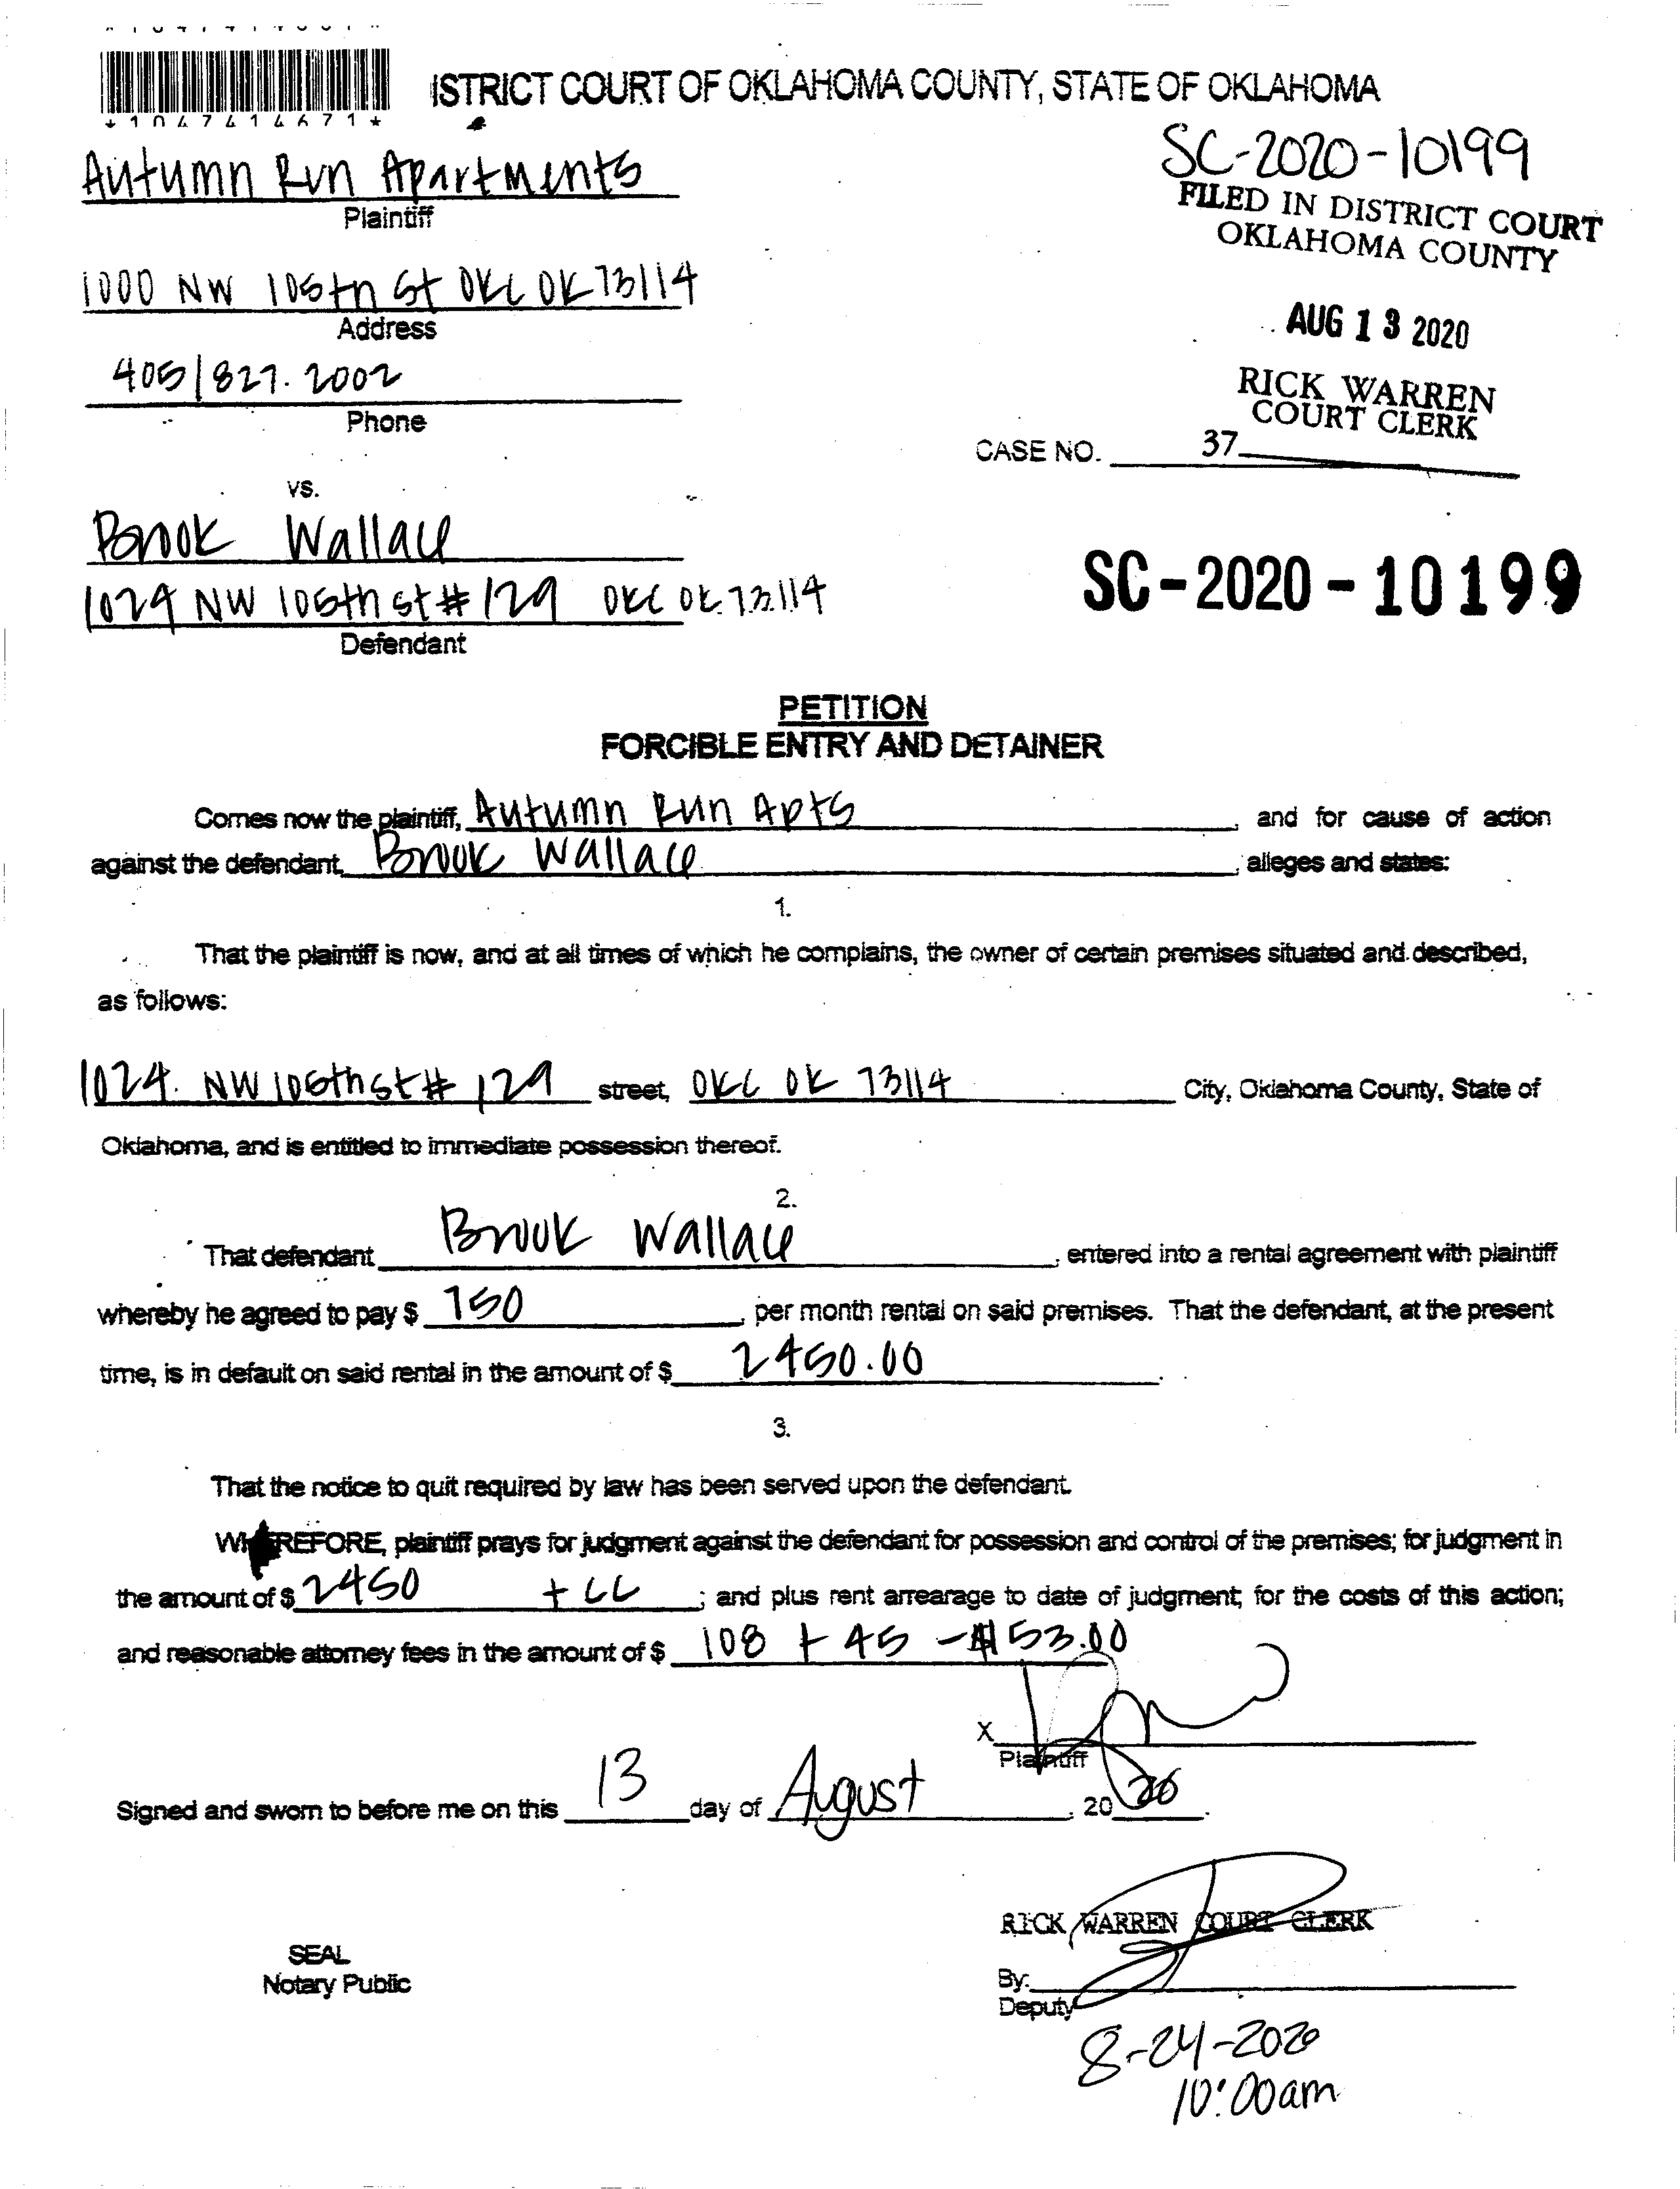 *1047414671*
ISTRICT COURT OF OKLAHOMA COUNTY, STATE OF OKLAHOMA
SC-2020-10199
Autumn Run Apartments
Plaintiff
FILED IN DISTRICT COURT
OKLAHOMA COUNTY
1000 NW 105th St OKC OK 73114
Address
AUG 13 2020
405/827.2002
Phone
RICK WARREN
COURT CLERK
CASE NO. 37
vs.
Brook Wallace
1024 NW 106th st # 129 OKC OK 73114
Defendant
SC-2020-10199
PETITION
FORCIBLE ENTRY AND DETAINER
Comes now the plaintiff, Autumn Run Apts, and for cause of action
against the defendant, Brook Wallace, alleges and states:
1.
That the plaintiff is now, and at all times of which he complains, the owner of certain premises situated and described,
as follows:
1024. NW 106th st # 129 street, OKC OK 73114 City, Oklahoma County, State of
Oklahoma, and is entitled to immediate possession thereof.
2.
That defendant Brook Wallace, entered into a rental agreement with plaintiff
whereby he agreed to pay $ 750, per month rental on said premises. That the defendant, at the present
time, is in default on said rental in the amount of $ 2450.00.
3.
That the notice to quit required by law has been served upon the defendant.
WHEREFORE, plaintiff prays for judgment against the defendant for possession and control of the premises; for judgment in
the amount of $ 2450 + CC; and plus rent arrearage to date of judgment; for the costs of this action;
and reasonable attorney fees in the amount of $ 108 + 45 - $153.00
X
Plaintiff
Signed and sworn to before me on this 13 day of August, 2020.
RICK WARREN COURT CLERK
SEAL
Notary Public
By:
Deputy
8-24-2020
10:00am